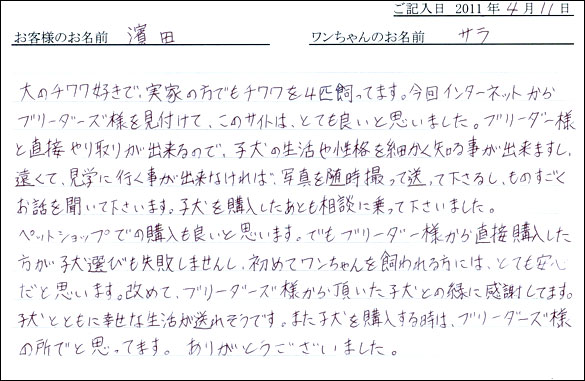 ご記入日 2011年4月11日
お客様のお名前 濱田 ワンちゃんのお名前 サラ
大のチワワ好きで、実家の方でもチワワを4匹飼ってます。今回インターネットから
ブリーダーズ様を見付けて、このサイトは、とても良いと思いました。ブリーダー様
と直接やり取りが出来るので、子犬の生活や性格を細かく知る事が出来ますし、
遠くて、見学に行く事が出来なければ、写真を随時撮って送って下さるし、ものすごく
お話を聞いて下さいます。子犬を購入したあとも相談に乗って下さいました。
ペットショップでの購入も良いと思います。でもブリーダー様から直接購入した
方が子犬選びも失敗しませんし、初めてワンちゃんを飼われる方には、とても安心
だと思います。改めて、ブリーダーズ様から頂いた子犬との縁に感謝してます。
子犬とともに幸せな生活が送れそうです。また子犬を購入する時は、ブリーダーズ様
の所でと思ってます。 ありがとうございました。